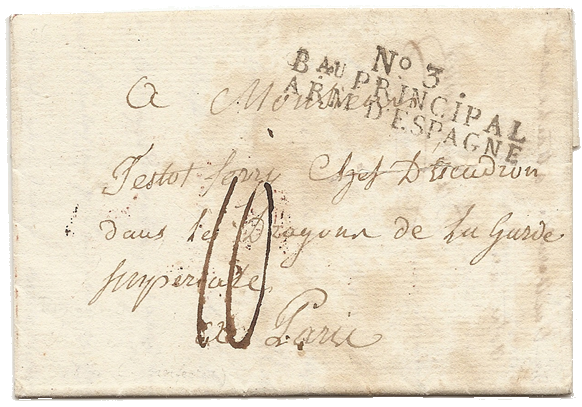 No 3.
Bau PRINCIPAL
ARM D'ESPAGNE
A Monsieur
Testot ferri Chef D'escadron
dans les Dragons de La Garde
impériale
10
a Paris